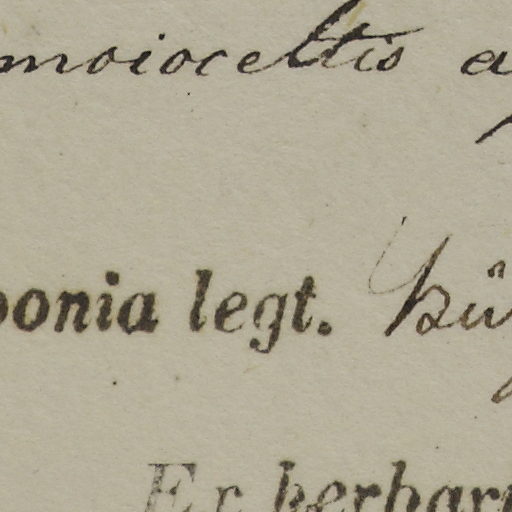 moioceltis a
ponia legt. Bü
Ex herbar